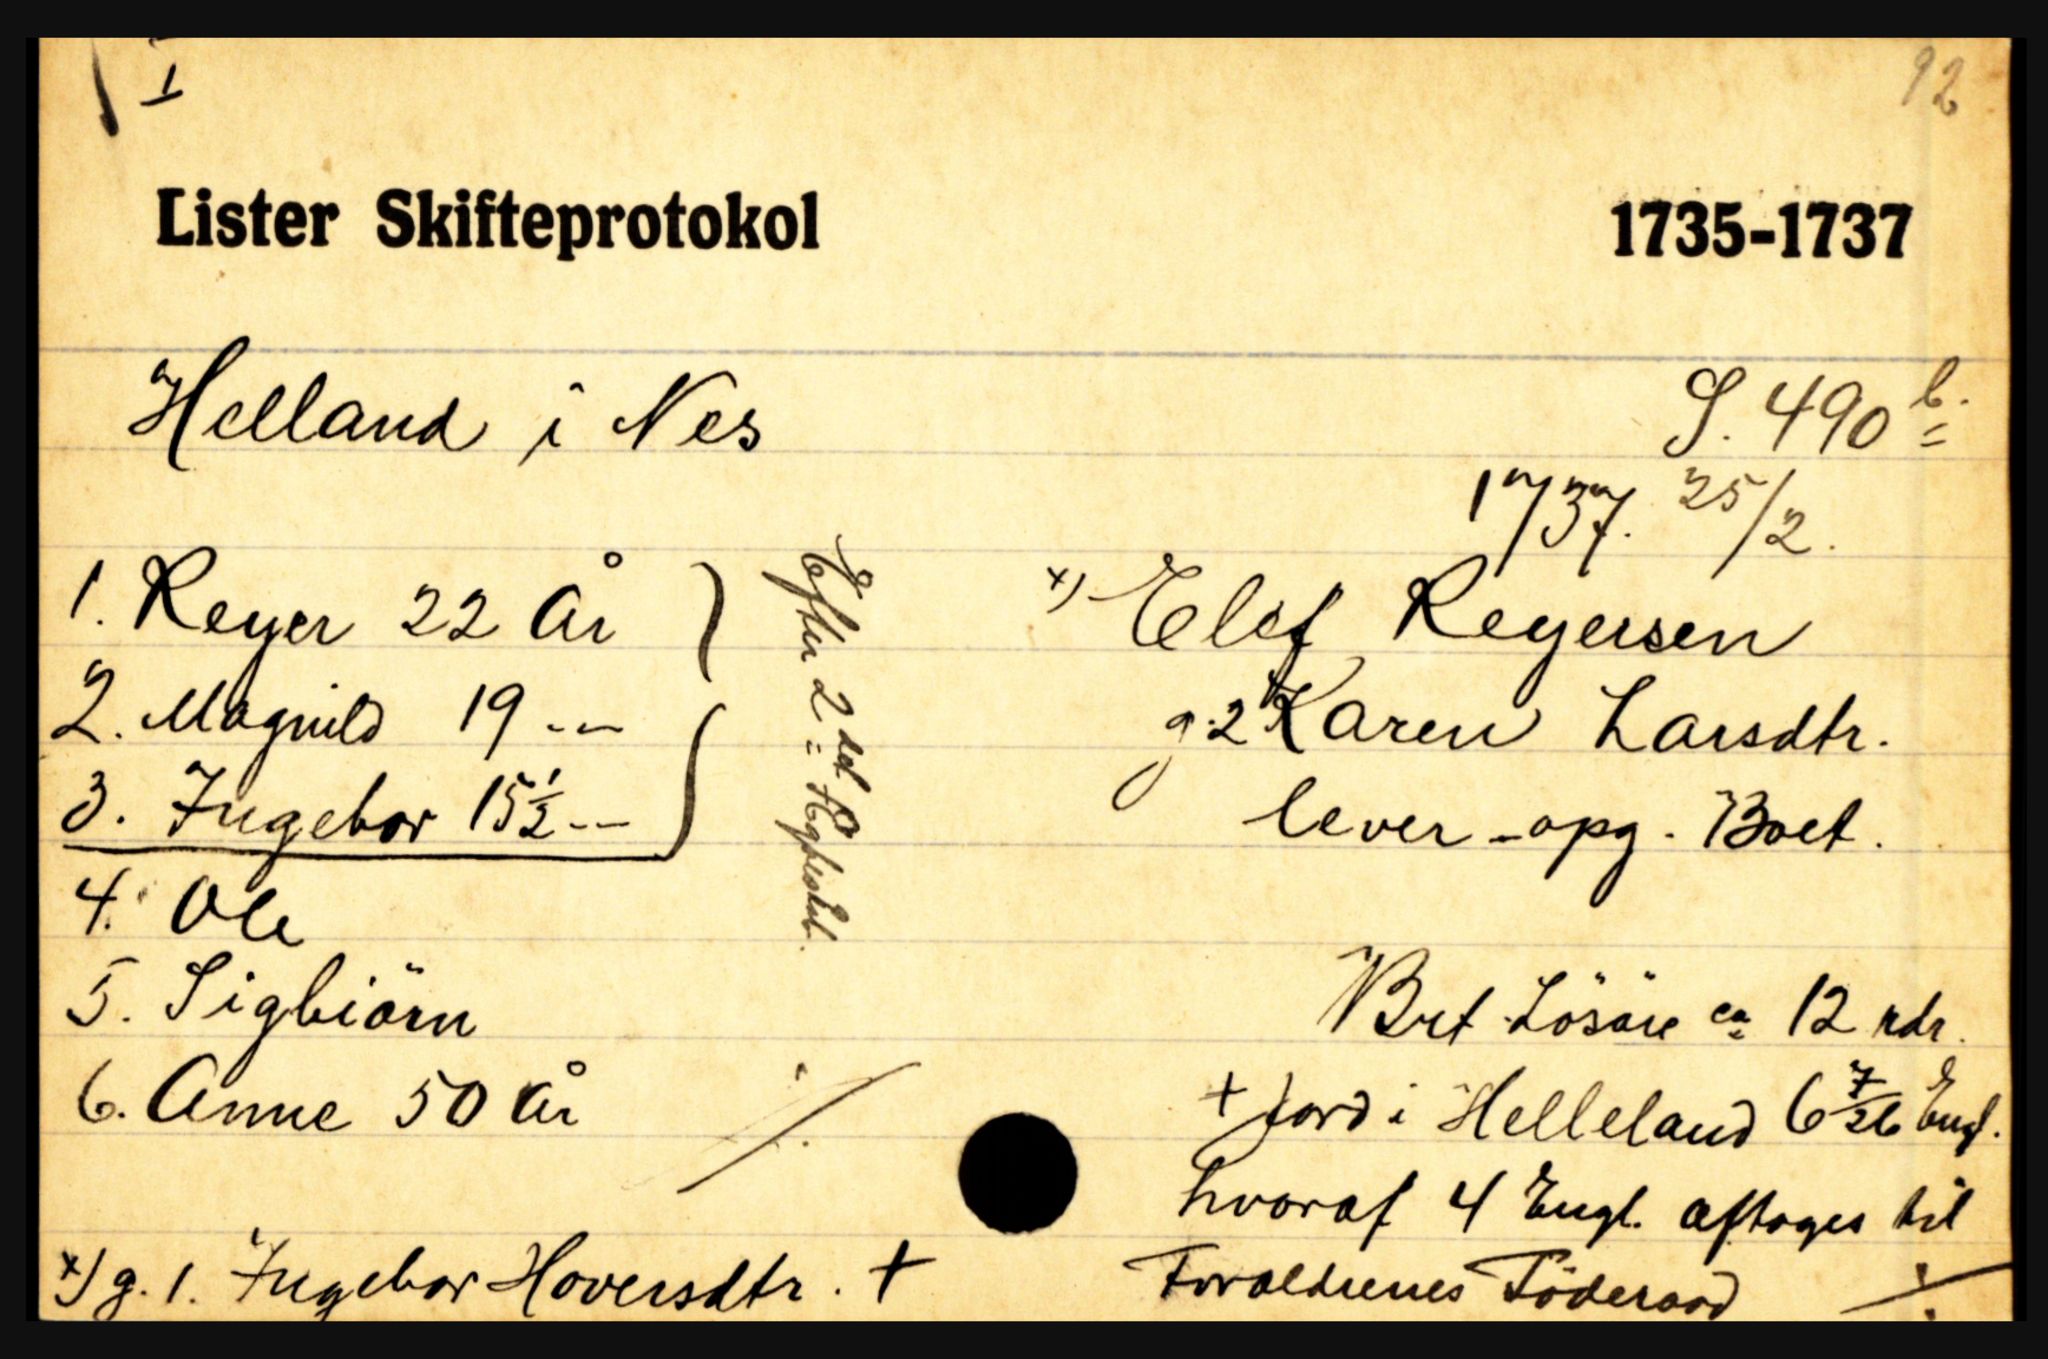 I
92
Lister Skifteprotokol 1735-1737
Helland i Nes S. 490 b.
1737. 25/2.
1. Reyer 22 År
2. Magnild 19 --
3. Ingebor 15 1/2 --
4. Ole
5. Sigbiörn
6. Anne 50 År ./.
Efter 2det Ægteskab.
x) g. 1. Ingebor Hoversdtr. +
x) Elef Reyersen
g. 2 Karen Larsdtr.
lever - opg. Boet.
Brt Lösöre ca 12 rdr.
+ Jord i Helleland 6 7/26 Engl.
hvoraf 4 Engl. aftages til
Forældrenes Föderaad ./.